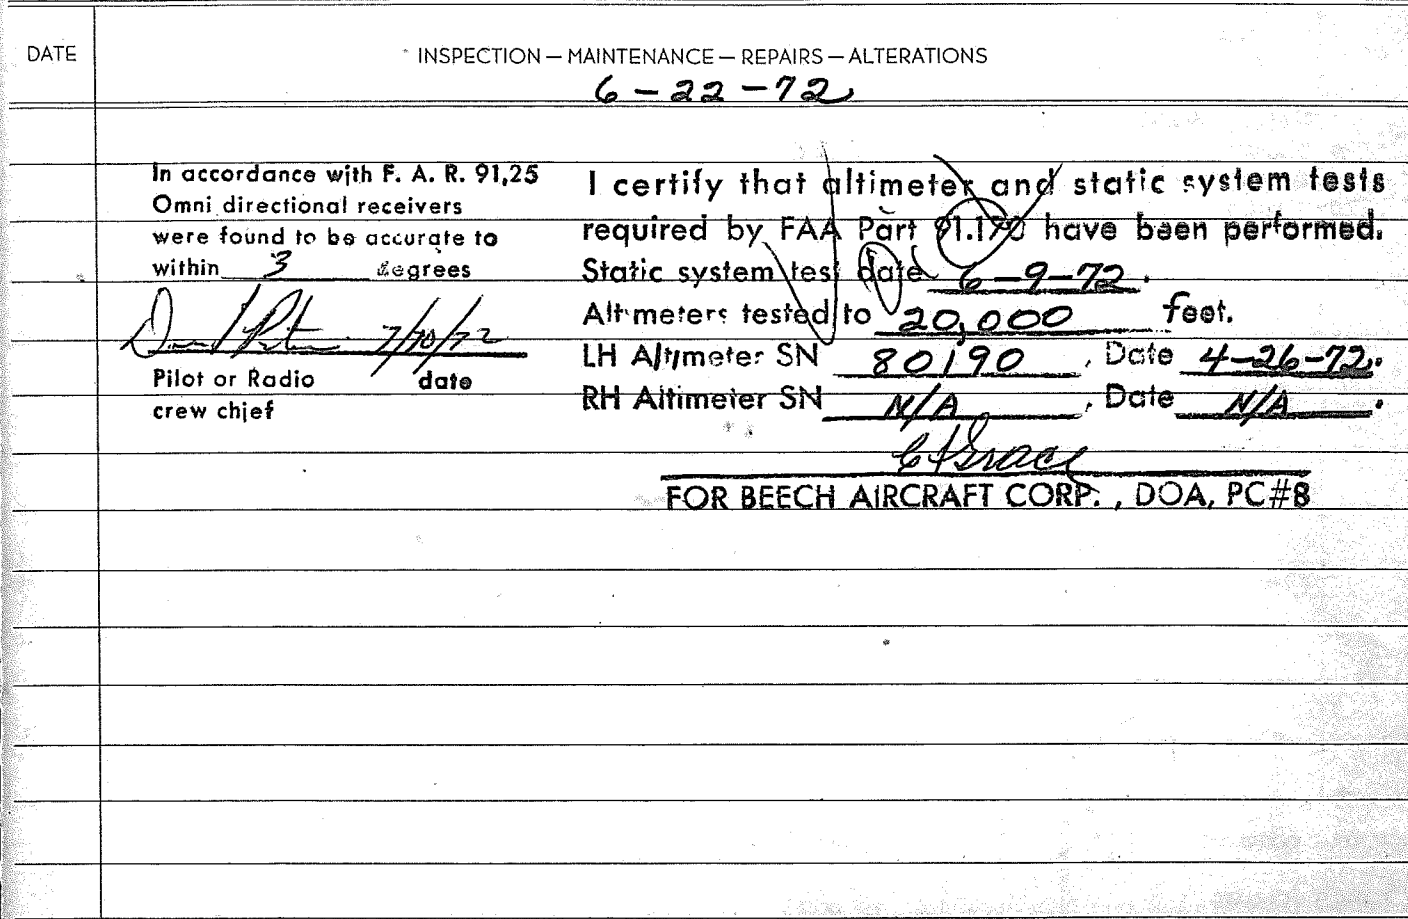 DATE
INSPECTION — MAINTENANCE — REPAIRS — ALTERATIONS
6-22-72
In accordance with F. A. R. 91.25
Omni directional receivers
were found to be accurate to
within 3 degrees
7/10/72
Pilot or Radio date
crew chief
I certify that altimeter and static system tests
required by FAA Part 91.170 have been performed.
Static system test date 6-9-72.
Altimeters tested to 20,000 feet.
LH Altimeter SN 80190, Date 4-26-72.
RH Altimeter SN N/A, Date N/A.
FOR BEECH AIRCRAFT CORP., DOA, PC#8